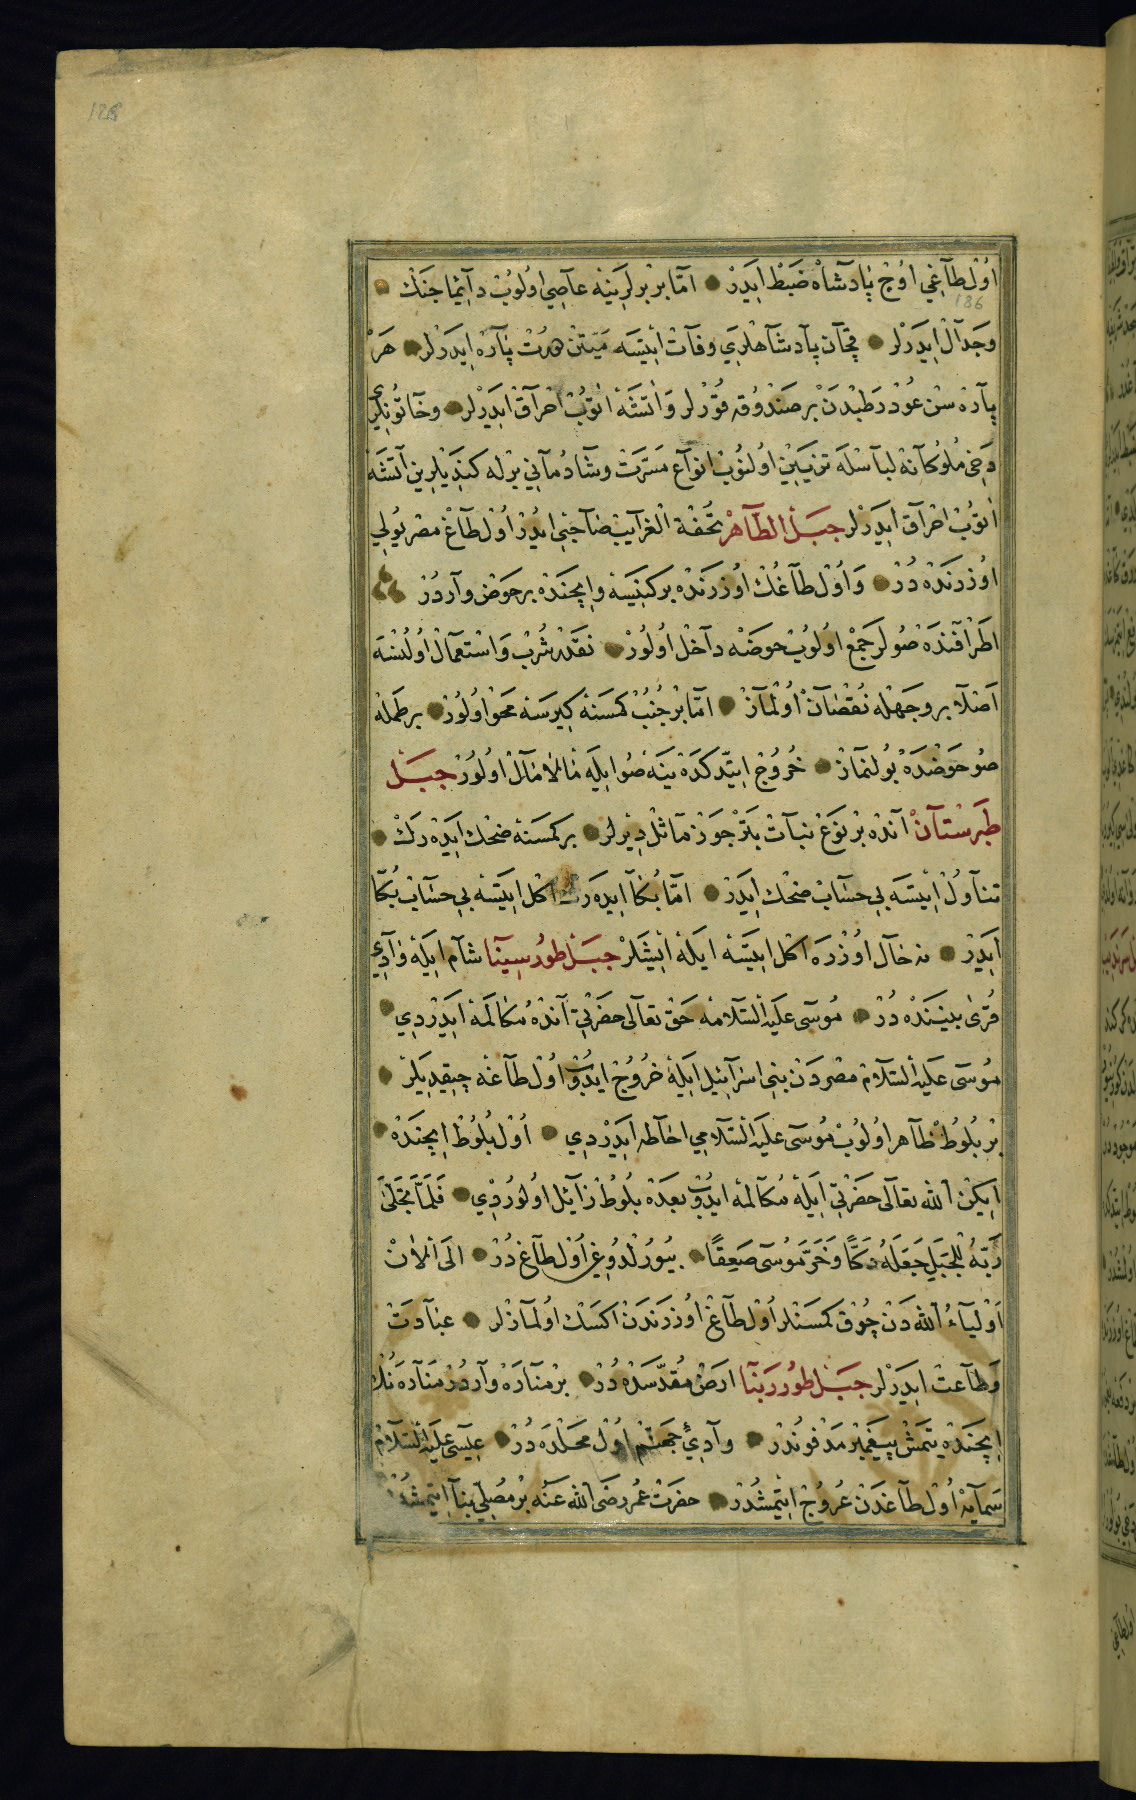 188
اُوْل طَآغِي اُوْچ پَادِشَاه ضَبْط اِيدَرْ اَمَّا بِرْ بِرْلَرِينَه عَاصِي اُولُوبْ دَآئِمَا جَنْك
186
وَجِدَآلْ اِيدَرْلَر قَچَآن پَآدِشَآهْلَرِي وَفَآت اَيْتسَه مَيّتِنْ دُرْت پَآرَه اِيدَرْلَر هَرْ
پَآرَه سِنْ عُوْد رَطْبدَنْ بِر صَنْدُوقَه قُوْرْلَر وَآتَشَه اَتُوبْ اِحْرَآق اِيدَرْلَر وخَآتُونلَرِي
دَخِي مُلُوكَآنَه لِبَآسْلَه تَزْيِين اُولنُوبْ اَنْوَآع مَسَرَّتْ وشَادُمَآنِي بِرْلَه كَنْدِيلَرِين آتَشَه
اَتُوبْ اِحْرَآق اِيدَرْلَر جَبَلْ الطَّآهِرْ تُحْفَة الْغَرَآئِبْ صَآحِبِي اَيْدُرْ اُوْل طَآغ مِصْر يُولِي
اُوزْرَنْدَه دُرْ وَاُوْل طَآغُكْ اُوزْرَنْدَه بِر كَنِيسَه وَاِيچِنْدَه بِر حَوْض وَآردُرْ
اَطْرَافَنْدَه صُولَر جَمْع اُولُوبْ حَوْضَه دَآخِل اُولُورْ نَقَدَرْ شُرْبْ وَاسْتِعْمَآلْ اُولُنْسَه
اَصْلَا بِر وَجْهلَه نُقْصَآنْ اُولْمَآزْ اَمَّا بِرْ جُنُبْ كِمَسْنَه كِيرسَه مَحْو اُولُورْ بِر طَمْلَه
صُو حَوْضَدَه بُولنمَازْ خُرُوجْ اِيتّدكَدَه يِنَه صُو اِيلَه مَالَامَالْ اُولُورْ جَبَل
طَبَرِسْتَآنْ آنْدَه بِرْ نَوْع نَبَآتْ بِتَرْ جَوْز مَآثِلْ دِيْرلَر بِر كِمَسْنَه ضِحْك اَيدَه رَكْ
تَنَآوُلْ اَيْتسَه بِي حِسَابْ ضِحْك اِيدَرْ اَمَّا بُكَآ اَيدَه رَكْ اَكْل اَيتسَه بِي حِسَابْ بُكَا
اَيدَرْ نَه حَال اُوزْرَه اَكْل اَيتسَه اَيلَه اَيْشلَرْ جَبَل طُورْ سِينَا شَام اِيلَه وَادِي
قُرَى بَينَنْدَه دُرْ مُوسَى عَلَيْه السَّلَامَه حَق تَعَالَى حَضْرَتِي آنْدَه مُكَالَمَه اَيدَرْدِي
مُوسَى عَلَيْه السَّلَامْ مِصْردَنْ بَنِي اِسْرَآئِيل اِيلَه خُرُوجْ اَيدُوبْ اُوْل طَآغَه چِيقدِيلَرْ
بِرْ بُلُوطْ ظَآهِر اُولُوبْ مُوسَى عَلَيْه السَّلَامِي اِحَآطَه اَيدَرْدِي اُوْل بُلُوطْ اِيچِنْدَه
اَيكَنْ اَللّٰه تَعَالَى حَضْرَتِي اِيلَه مُكَآلَمَه اَيدُوبْ بَعْدَه بُلُوطْ زَآئِل اُولُورْدِي فَلَمَّا تَجَلَّى
رَبُّهُ لِلْجَبَلِ جَعَلَهُ دَكًّا وَخَرَّ مُوسَى صَعِقًا بُيُورْلدُوغِي اُوْل طَآغ دُرْ اِلَى الْاَنْ
اَوْلِيَاءُ اللّٰه دَنْ چُوْق كِمَسْنَلَر اُوْل طَآغ اُوزْرَنْدَنْ اَكْسَك اُولْمَازْلَر عِبَآدَتْ
وَطَآعَتْ اِيدَرْلَر جَبَل طُورْ رَيْتَا اَرْض مُقَدَّسَدَه دُرْ بِرْ مَنَآرَه وَآردُرْ مَنَآرَه نُكْ
اِيچِنْدَه يَتْمَشْ پِيغَمْبَر مَدْفُونْدُر وَآدِئ جَهَنَّم اُوْل مَحَلْدَه دُرْ عِيسَى عَلَيْه السَّلَامْ
سَمَايَه اُوْل طَآغدَنْ عُرُوجْ اِيتْمِشْدُرْ حَضْرَت عُمَر رَضِيَ اللّٰه عَنْه بِرْ مُصَلِّى بِنَا اِيتْمِشْدُرْ